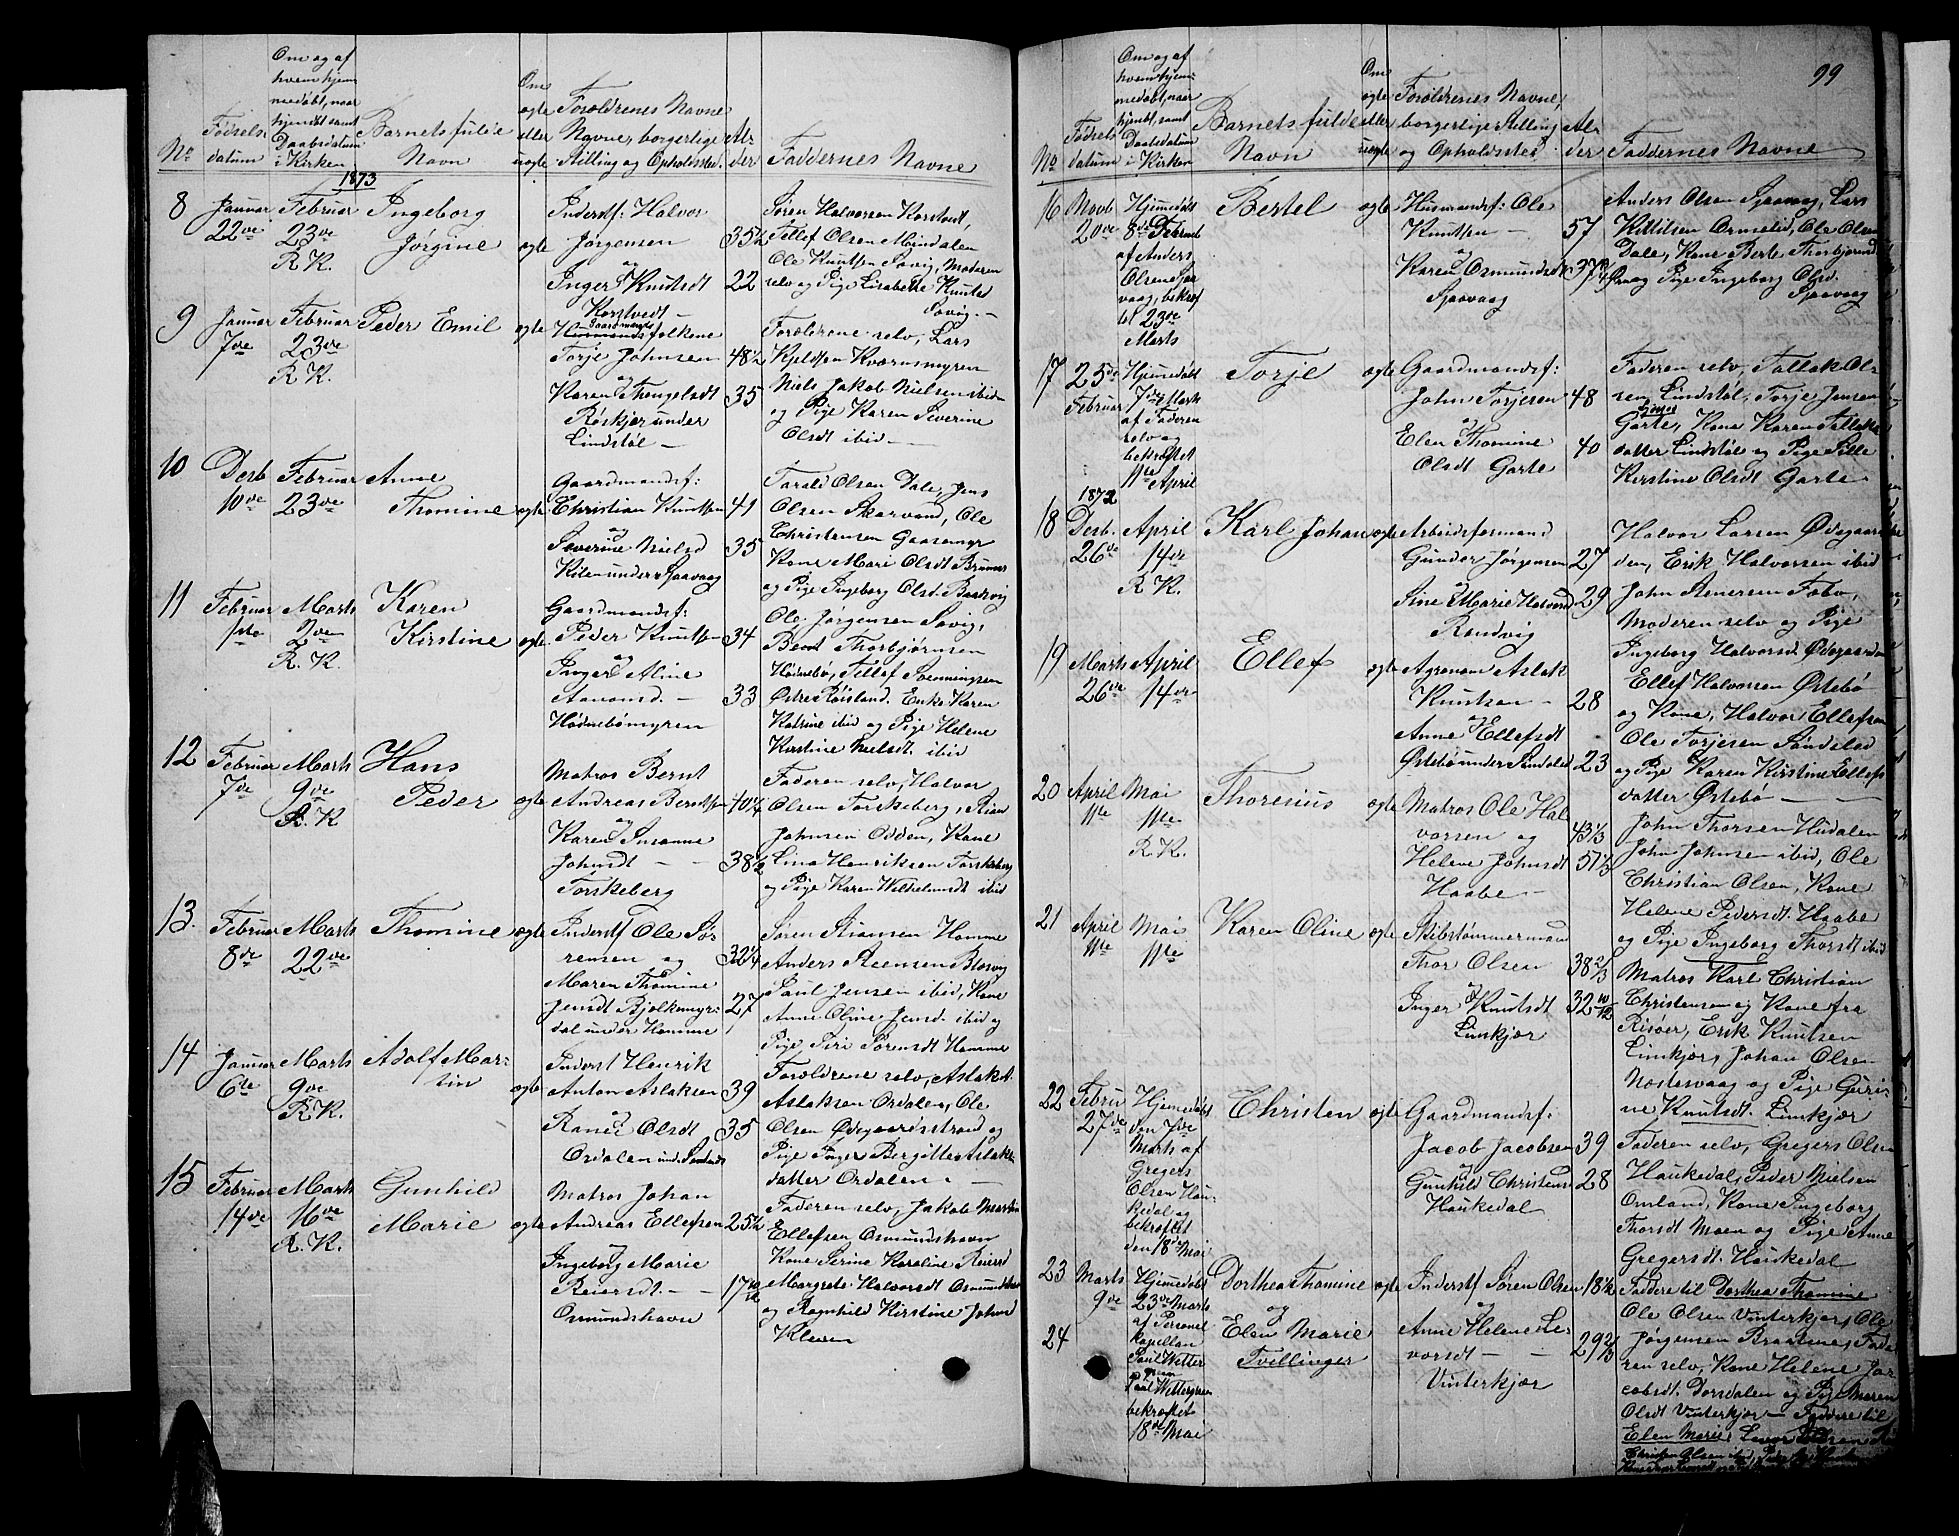 99
No
Fødsels
datum
Om og af
hvem hjem
medøbt, naar
hjembt samt
Daabsdatum
i Kirken
Barnets fulde
Navn
Om
ægte
eller
uægte
Forældrenes Navne
Navne, borgerlige
Stilling og Opholdssted.
Al-
der
Faddernes Navne
1873
8 Januar 22de
Februar 23de R. K.
Ingeborg Jørgine
ægte
Inderstf: Halvor
Jørgensen 35½
og
Inger Knutsdt 22
Søren Halvorsen
Tellef Olsen Mindalen
Ole Knutsen Savig, Moderen
selv og Pige Lisabethe Knutsd
Savig.
9 Januar 7de
Februar 23de R. K.
Peder Emil
ægte
Gaardmandsfolkene
Torje Johnsen 48½
og
Karen Thengelsdt 35
Røskjær under
Lindstøl
Forældrene selv, Lars
Kjeldsen Kværnsmyren
Niels Jakob Nielsen ibid
og Pige Karen Severine
Olsdt ibid
10 Desb 10de
Februar 23de
Anne Thomine
ægte
Gaardmandsf:
Christian Knutsen 41
og
Severine Nielsd 35
Kilen under Sjaavaag
Tarald Olsen Dale, Jens
Olsen Skarvand, Ole
Christensen Gaasemyr
Kone Mari Olsdt
og Pige Ingeborg Olsd.
11 Februar 1ste
Marts 2den R. K.
Karen Kirstine
ægte
Gaardmandsf:
Peder Knutsen 34
og
Inger Aline
Aanonsd. 33
Hødnebømyren
Ole Jørgensen Savig,
Bent Thorbjørnsen
Hødnebø, Tellef Svenningsen
Østre Røisland, Enke Karen
Katrine ibid og Pige Helene
Kirstine Nielsdt. ibid
12 Februar 7de
Marts 9de R. K
Hans Peder
ægte
Matros Bernt
Andreas Berntsen 40¼
og
Karen Susanne
Johnsdt 38½
Torskeberg
Faderen selv, Halvor
Olsen Torskeberg, Stian
Johnsen Odden, Kone
Lina Henriksen Torskeberg
og Pige Karen Wilhelmsdt ibid
13. Februar 8de
Marts 22de
Thomine
ægte
Inderstf Ole Sø-
rensen og 32¼
Maren Thomine
Jensdt Bjelkemyr- 27
dal under Homme
Søren Stiansen Homme
Anders Steensen
Paul Jensen ibid, Kone
Anne Oline Jensd. ibid og
Pige Siri Sørensdt Homme
14 Januar 6te
Marts 9de R. K.
Adolf Mar-
tin
ægte
Inderst Henrik
Anton Aslaksen 39
og
Olsdt 35
Ordalen
Forældrene selv, Aslak
Aslaksen Ordalen, Ole
Olsen Ødegaardsstrand og
Pige Inger Bergitte Aslaks
datter Ordalen.
15 Februar 14de
Marts 16de R. K.
Gunhild Marie
ægte
Matros Johan
Andreas Ellefsen 25½
og
Ingeborg Marie
Reiersdt.
Osmundshavn
Faderen selv, Jakob Martin
Ellefsen Osmundshavn
Kone Serine Karoline Reiersd
Margrete Halvorsdt
og Ragnhild Kirstine Johnsd
Kleven
No
Fødsels
datum
Om og af
hvem hjem-
medøbt, naar
hjembt samt
Daabsdatum
i Kirken
Barnets fulde
Navn
Om
ægte
eller
uægte
Forældrenes Navne,
borgerlige Stilling
og Opholdssted
Al-
der
Faddernes Navne
16 Novb 20de
Hjemedøbt
8de Februar
af Anders
Olsen
bekræf
tet 23de
Marts
Bertel
ægte
Husmandsf: Ole
Knutsen 57
og
Karen Osmundsdt
Sjaavaag
Anders Olsen Sjaavaag, Lars
Kittilsen Ormelid, Ole Olsen
Dale, Kone Berte Thorbjørnsd
Pige Ingeborg Olsd.
Sjaavaag
17 25de Februar
Hjemedøbt
7de Marts
af Faderen
selv og
bekræftet
11te April
Torje
ægte
Gaardmandsf:
John Torjesen 48
og
Elen Thomine
Olsdt Garte 40
Faderen selv, Tallak Ol-
sen Lindstøl, Torje Jensen
Garte, Kone Karen Tallaks
datter Lindstøl og Pige Sille
Kirstine Olsdt Garte
1872
18 Desb. 26de
April 14de R. K.
Karl Johan
ægte
Arbeidsformand
Gunder Jørgensen 27
og
Sine Marie Halvorsd 29
Randvig
Halvor Larsen Ødegaar
den, Erik Halvorsen ibid
John
Moderen selv og Pige
Ingeborg Halvorsd. Ødegaarden
19 Marts 26de
April 14de
Ellef
ægte
Agronom Aslak
Knutsen 28
og
Anne Ellefsdt
Østebø under Sandaled 23
Ellef Halvorsen Østebø
og Kone, Halvor Ellefsen
Ole Torjesen Sandeled
og Pige Karen Kirstine Ellefs
datter Østebø
20 April 11te
Mai 11te R. K.
Thorenius
ægte
Matros Ole Hal
vorsen og 43⅓
Helene Johnsdt 51⅓
Haabe
John Thorsen Hudalen
John Johnsen ibid, Ole
Christian Olsen, Kone
Helene Pedersdt. Haabe
og Pige Ingeborg Thorsdt ibid
21 April 11te
Mai 11te
Karen Oline
ægte
Skibstømmermand
Thor Olsen 38⅔
og
Inger Knutsdt 32 10/12
Limkjær
Matros Karl Christian
Christensen og Kone fra
Risøer, Erik Knutsen
Limkjær, Johan Olsen
Nostervaag og Pige Guri-
ne Knutsdt. Limkjær
22 Febru 27de
Hjemedøbt
den 7de
Marts af
Gregers
Olsen Hau-
kedal og
bekræftet
den 18de Mai
Christen
ægte
Gaardmandsf:
Jacob Jacobsen 39
og
Gunhild Christensd 28
Haukedal
Faderen selv, Gregers Olsen
Haukedal, Peder Nielsen
Omland, Kone Ingeborg
Thorsdt Moen og Pige Anne
Gregersdt. Haukedal
23 Marts 9de
24
Hjemedøbt
23de Marts
af Personel
kapellan
Paul Wetter
gren
Paul Wettergreen
bekræftet
18de Mai
Dorthea Thomine
og
Elen Marie
Tvillinger
ægte
Inderstf Søren Olsen 18½
og
Anne Helene Le-
vorsdt 29⅔
Vinterkjær
Faddere til Dorthea Thomine
Ole Olsen Vinterkjær, Ole
Jørgensen Braatene, Fade
ren selv, Kone Helene Ja-
cobsdt. Dorsdalen og Pige Maren
Olsdt Vinterkjær — Faddere til
Elen Marie,